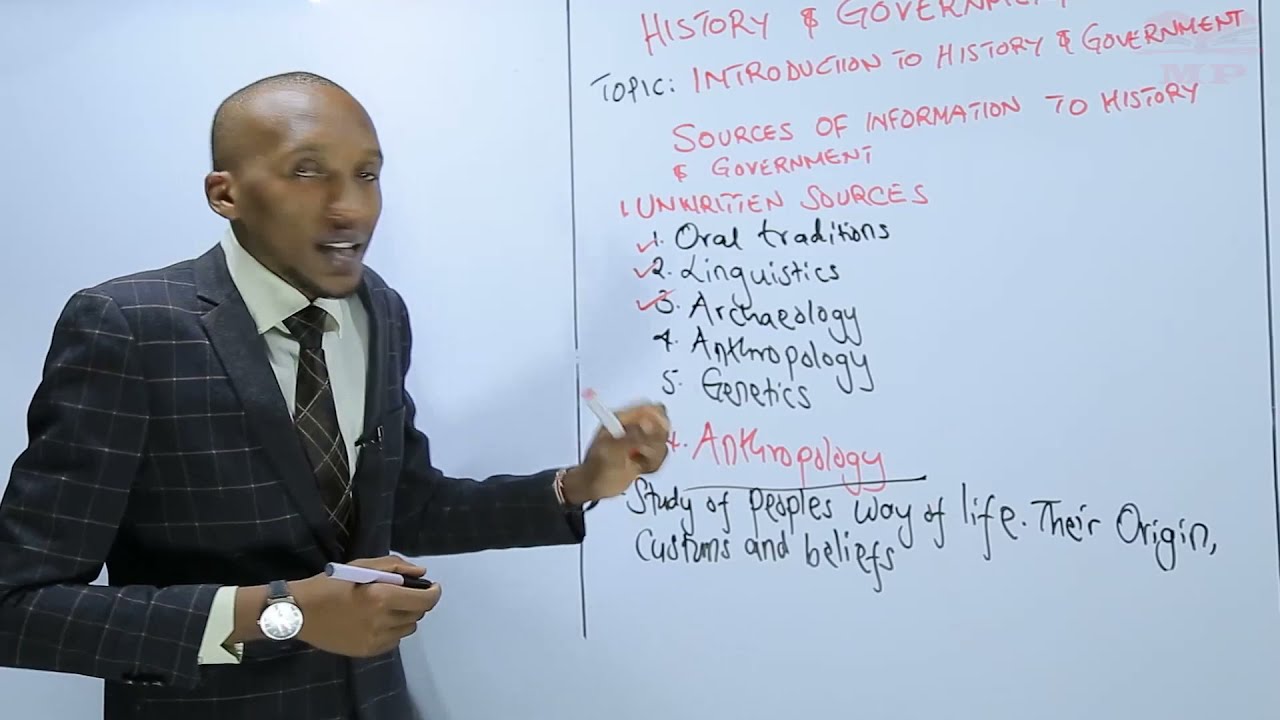 HISTORY & GOVERNMENT
TOPIC: INTRODUCTION TO HISTORY & GOVERNMENT
MP
SOURCES OF INFORMATION TO HISTORY
& GOVERNMENT
1. UNWRITTEN SOURCES
1. Oral traditions
2. Linguistics
3. Archaeology
4. Anthropology
5. Genetics
4. Anthropology
- Study of peoples way of life. Their Origin,
Customs and beliefs